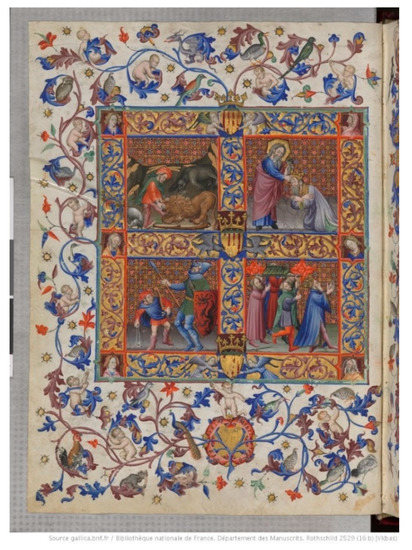 Source gallica.bnf.fr / Bibliothèque nationale de France. Département des Manuscrits. Rothschild 2529 (16 b) [Vkbas]